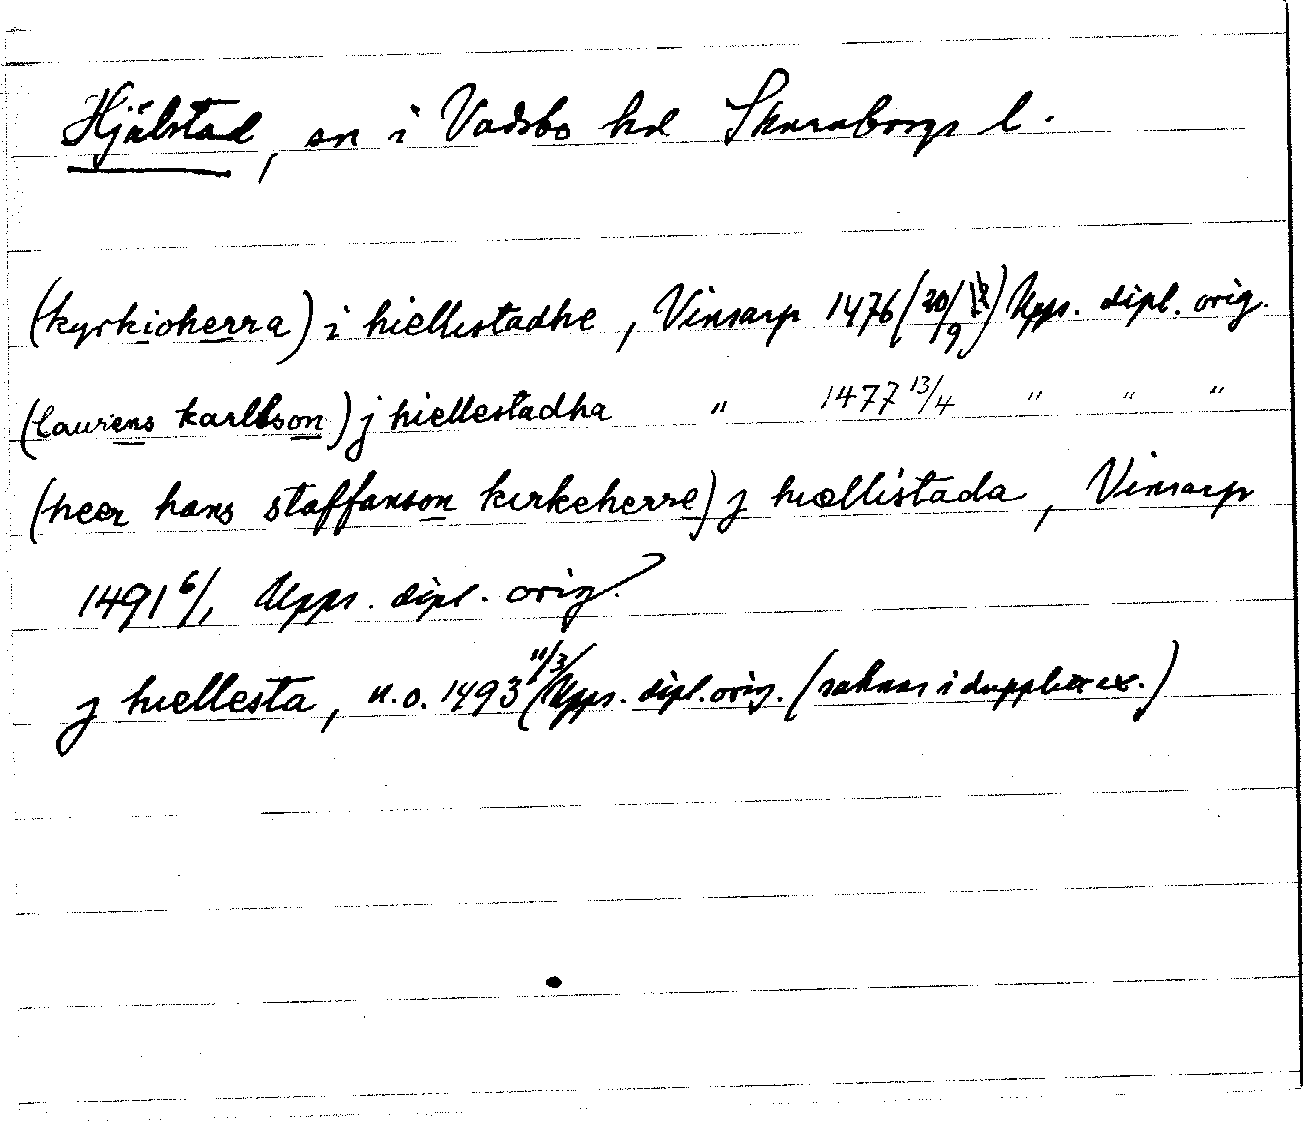 Hjälstad, sn i Vadsbo hd Skaraborgs l.
(kyrkioherra) i hiellestadhe, Vinsarp 1476 (20/9) Upps. dipl. orig.
(laurens karllson) j hiellestadha " 1477 13/4 " " "
(heer hans staffanson kirkeherre) j hiællistada, Vinsarp
1491 6/1 Upps. dipl. orig.
j hiellesta, u.o. 1493 11/3 (Upps. dipl. orig. (saknas i dupplettex.)